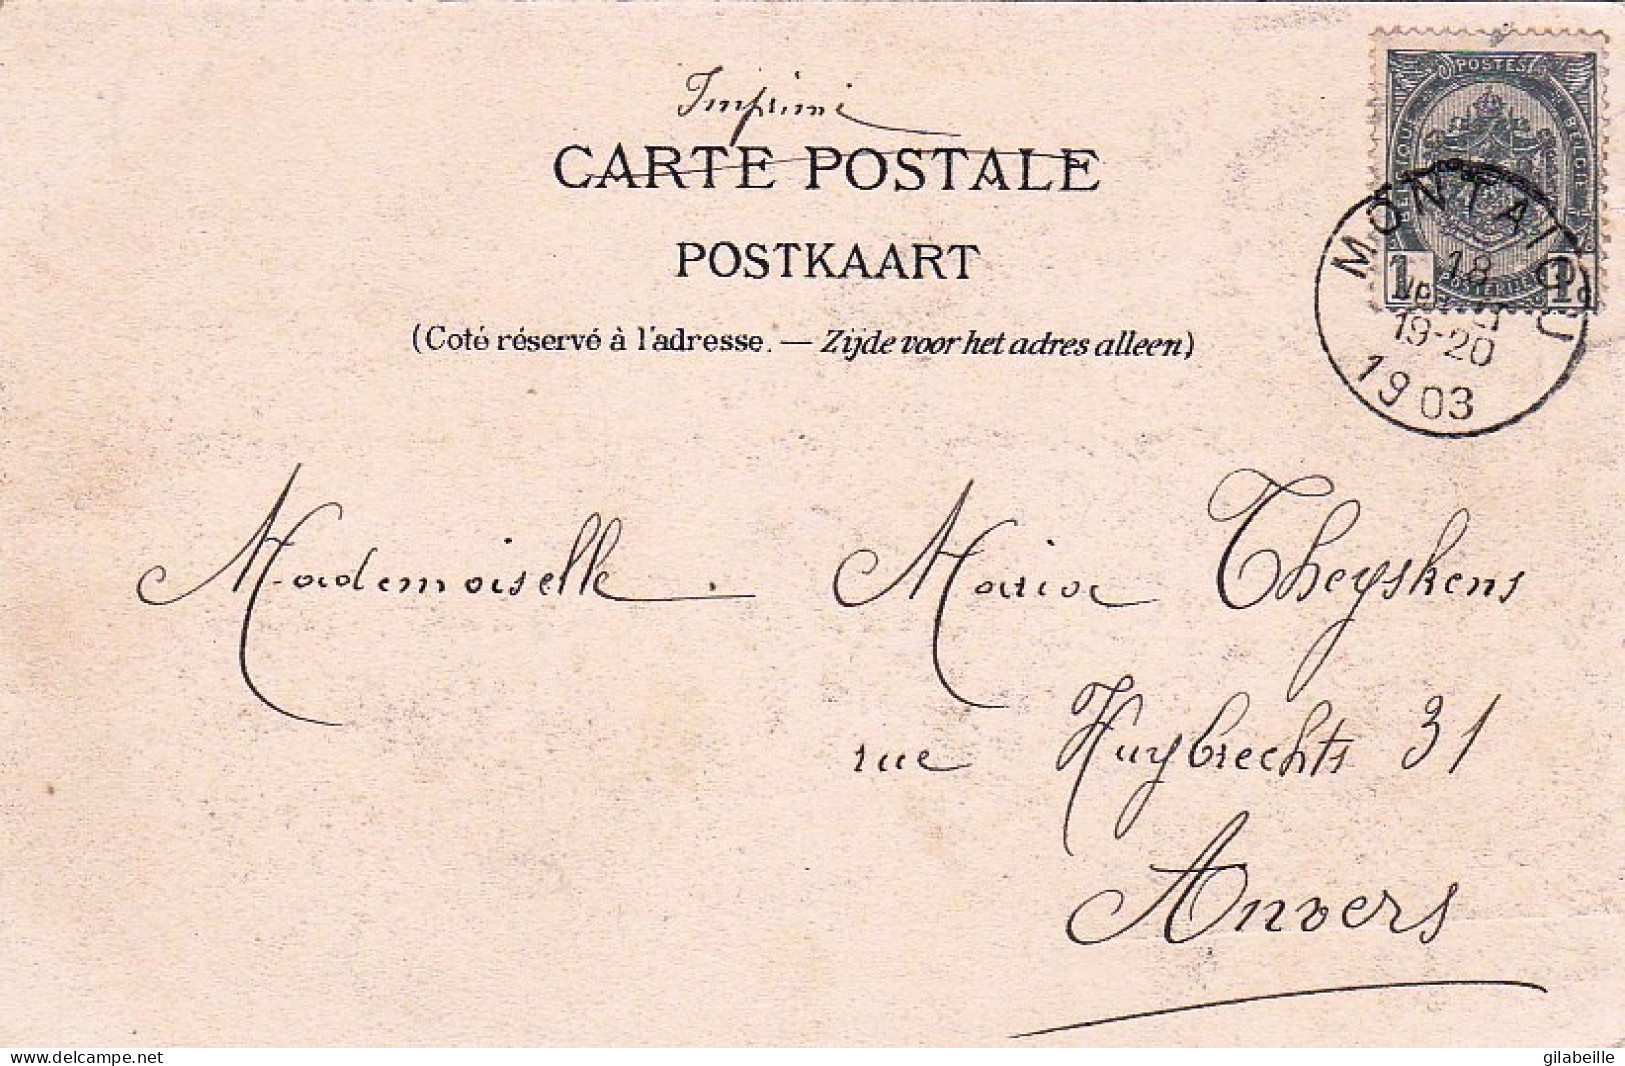 Imprimé
CARTE POSTALE
POSTKAART
(Coté réservé à l'adresse. — Zijde voor het adres alleen)
POSTES
BELGIQUE
BELGIË
1
1
MONTAIGU
18
19-20
1903
Mademoiselle Maria Theyskens
rue Huybrechts 31
Anvers
delcampe.net
gilabeille